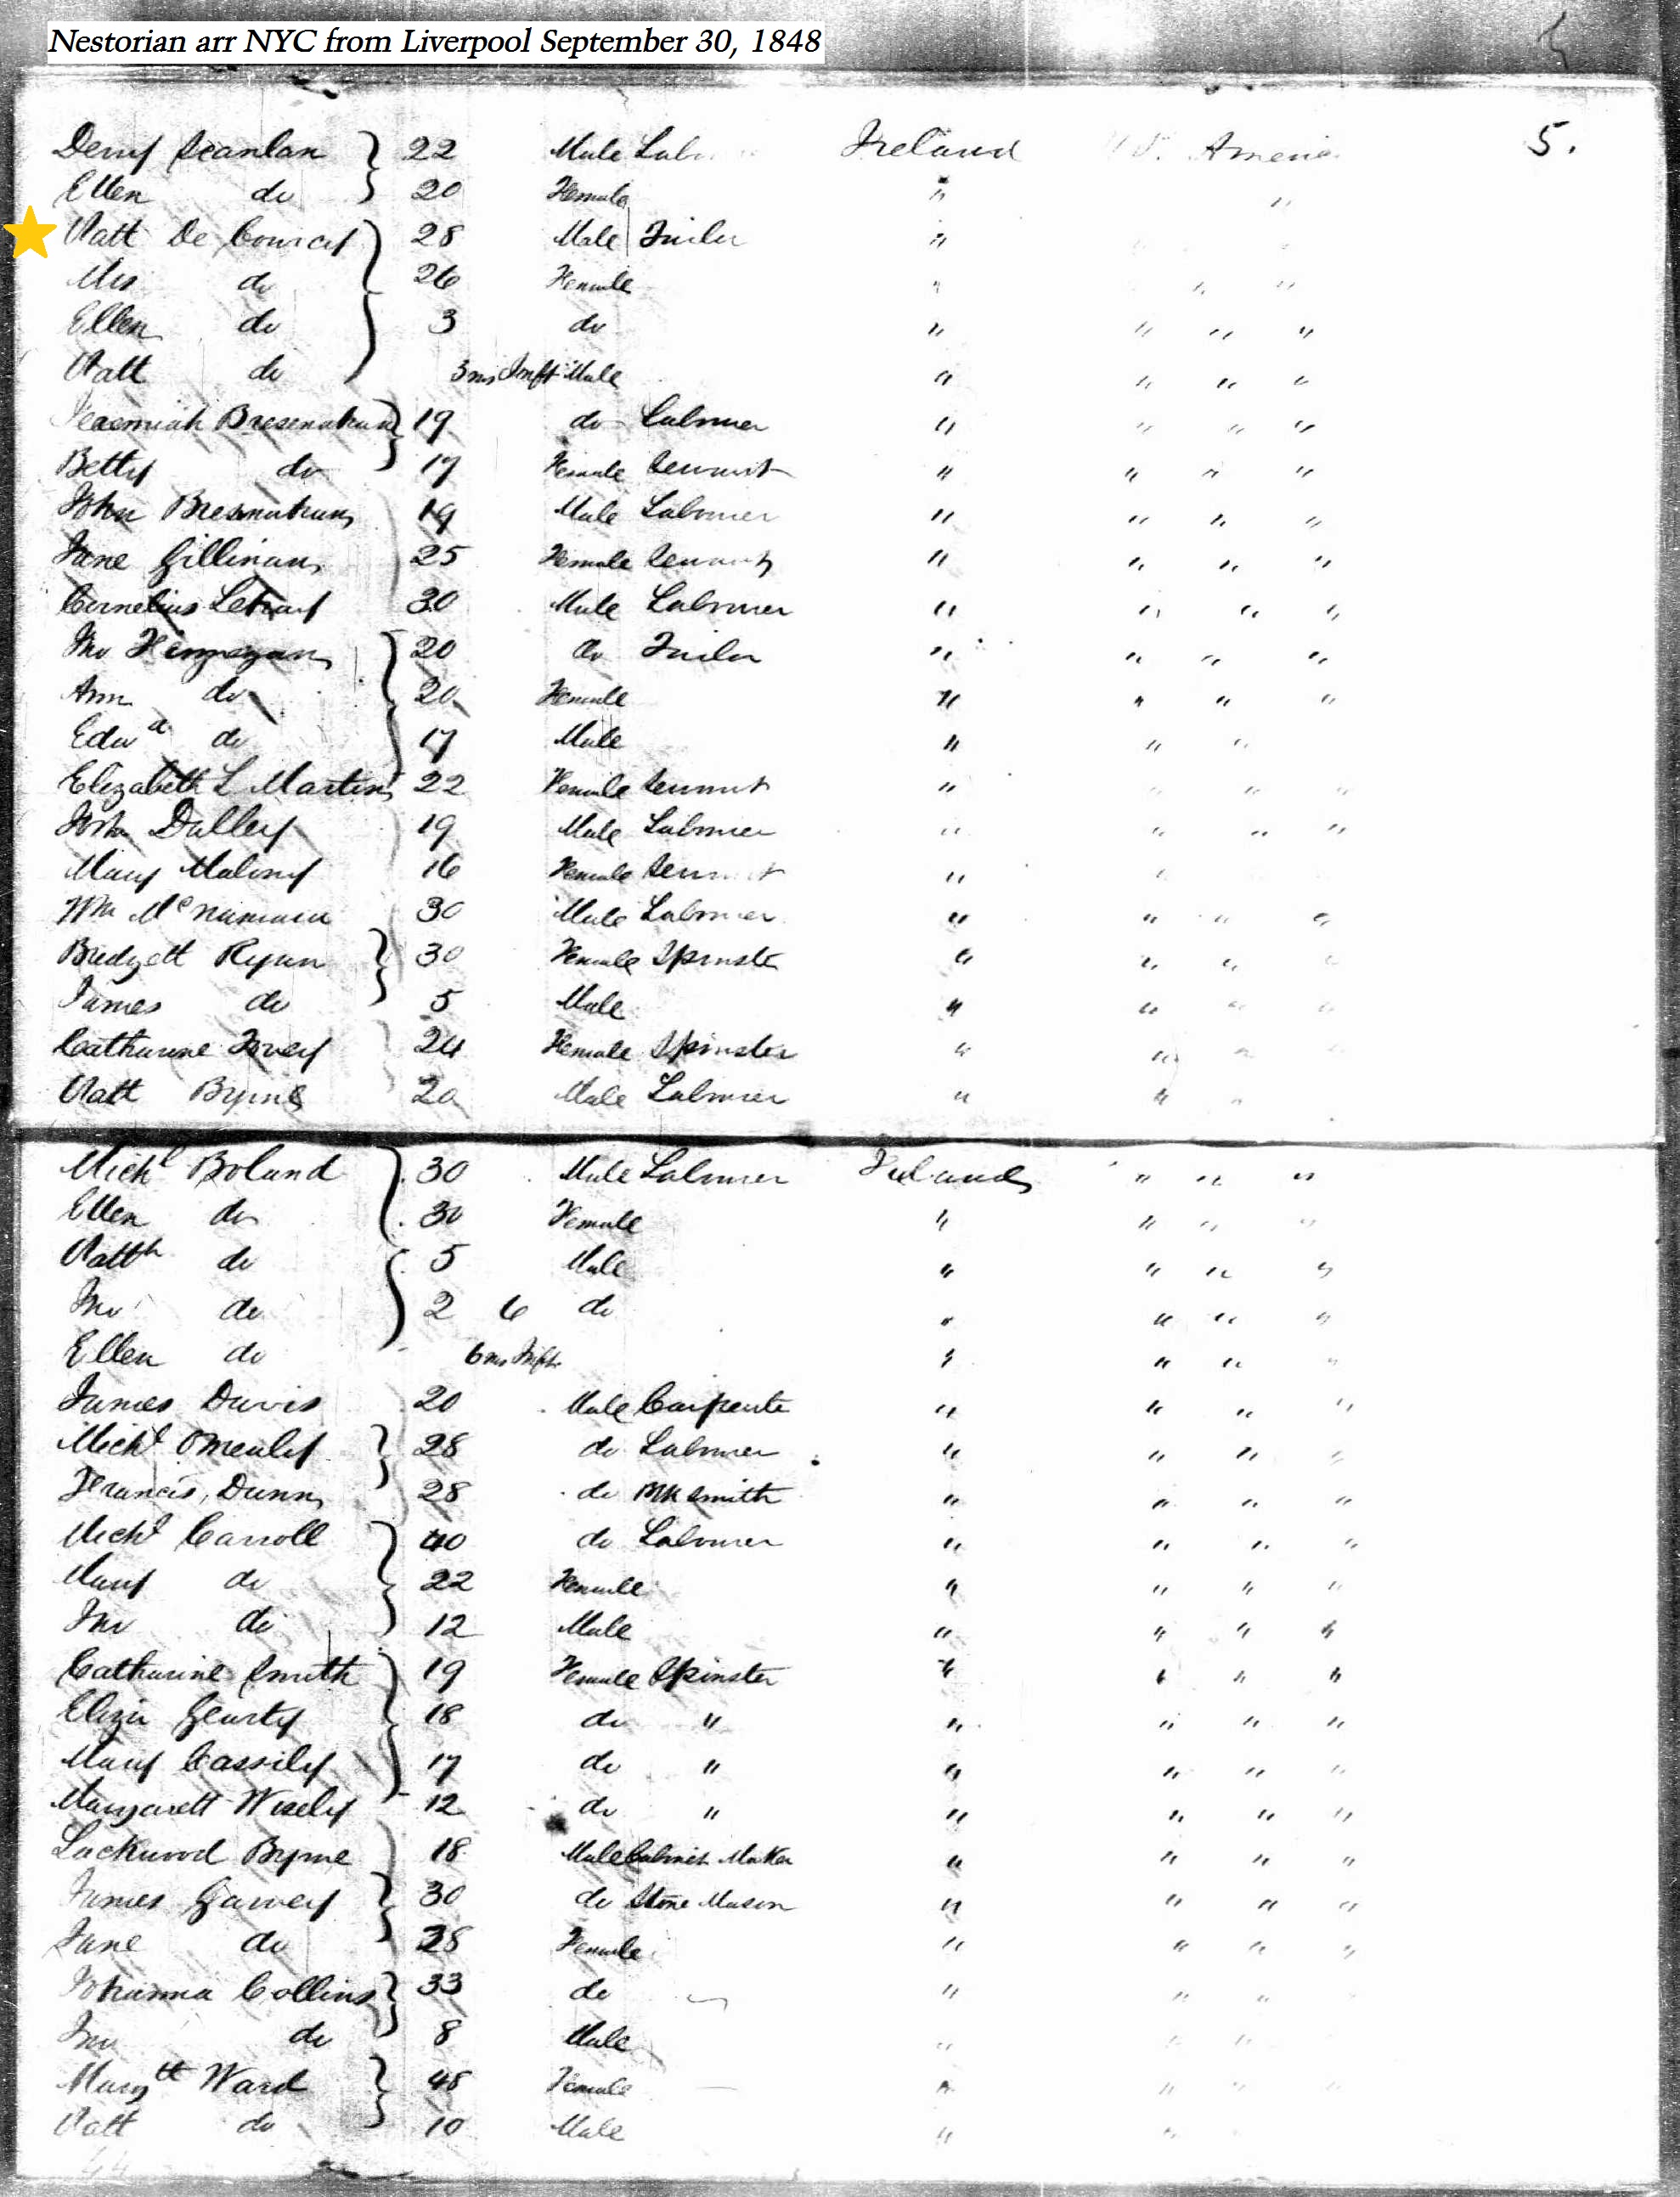 Nestorian arr NYC from Liverpool September 30, 1848
5
Denny Scanlan 22 Male Labr Ireland U S. America 5.
Ellen do 20 Female " "
Patt De Courcy 28 Male Tailor "
Mrs do 26 Female " " "
Ellen do 3 do " " " "
Patt do 3 ms Inft Male " " " "
Jeremiah Bresenahan 19 do Labourer " " " "
Betty do 17 Female Servant " " " "
John Bresnahan 19 Male Labourer " " " "
Jane Gillinan 25 Female Servant " " " "
Cornelius 30 Male Labourer " " " "
Jno Finnegan 20 do Tailor " " " "
Ann do 20 Female " " " "
Edwd do 17 Male " " "
Elizabeth L Martin 22 Female Servant " " " "
John Dulley 19 Male Labourer " " " "
Mary Malony 16 Female Servant " "
Wm McNamara 30 Male Labourer " " " "
Bridgett Ryan 30 Female Spinster " " " "
James do 5 Male " " " "
Catharine 24 Female Spinster " " "
Patt Byrne 20 Male Labourer " " "
Michl Boland 30 Male Labourer Ireland " " "
Ellen do 30 Female " " " "
Pattk do 5 Male " " " "
Jno do 2 6 do " " " "
Ellen do 6 ms Inft " " " "
James Davis 20 Male Carpenter " " " "
Michl OMealy 28 do Labourer " " " "
Francis Dunn 28 do Blk Smith " " " "
Michl Carroll 40 do Labourer " " " "
Mary do 22 Female " " " "
Jno do 12 Male " " " "
Catharine Smith 19 Female Spinster " " " "
Eliza Gearty 18 do " " " " "
Mary Cassily 17 do " " " " "
Margarett Wisely 12 do " " " " "
Lackwood Byrne 18 Male Cabinet Maker " " " "
James Garvey 30 do Stone Mason " " " "
Jane do 28 Female " " " "
Johanna Collins 33 do " " "
Jno do 8 Male " " "
Margtt Ward 48 Female " " "
Patt do 10 Male " "